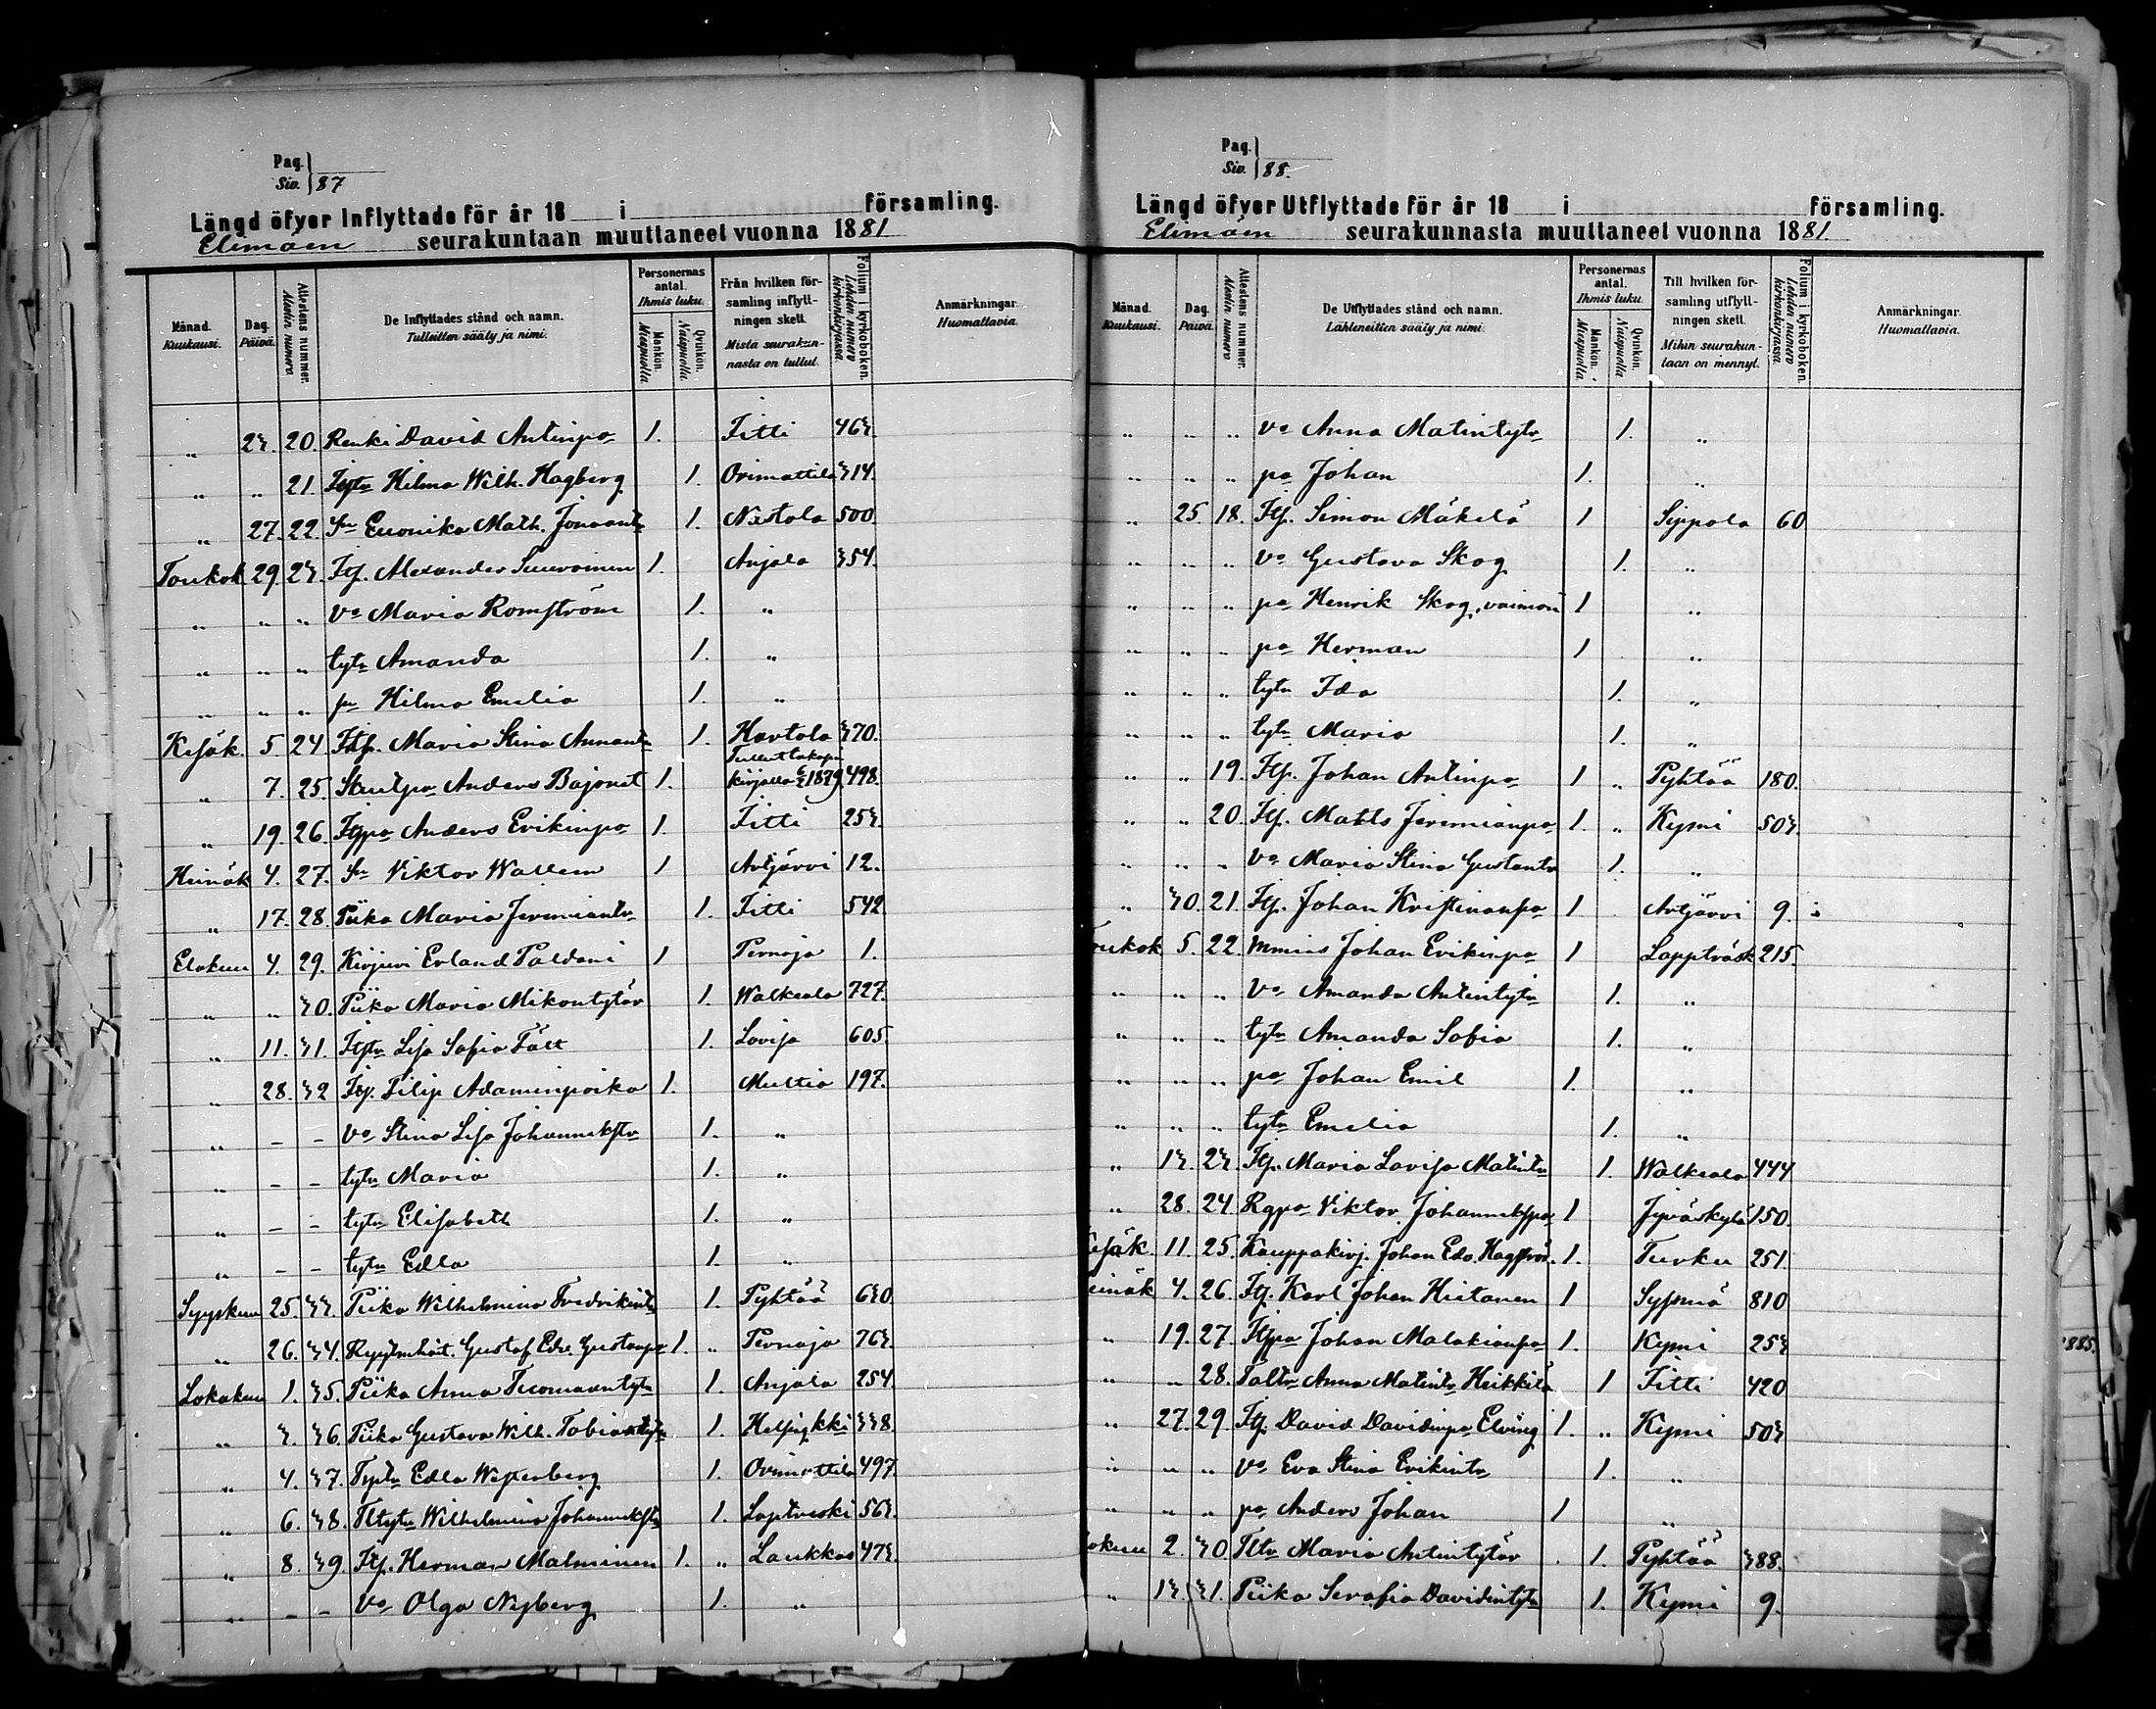 Pag.
Siv. 87
Längd öfver Inflyttade för år 18 i församling.
Elimäen seurakuntaan muuttaneet vuonna 1881
Månad. Kuukausi.
Dag. Päivä.
Attestens nummer. Atestin numero.
De Inflyttades stånd och namn. Tulleitten sääty ja nimi.
Personernas antal. Ihmis luku.
Mankön. Miespuolia
Qvinkön. Naispuolia
Från hvilken församling inflyttningen skett. Mistä seurakunnasta on tullut.
Folium i kyrkoboken. Lehden numero kirkonkirjassa.
Anmärkningar. Huomattavia.
„ 23. 20. Renki David Antinpa 1. Iitti 463.
„ „ 21. Itytr Hilma Wilh. Hagberg 1. Orimattila 314.
„ 27. 22. Math. 1. Nastola 500.
Toukok 29. 23. Itj. Alexander Suuroinen 1. Anjala 354.
„ „ „ va Maria Romström 1. „
„ „ „ tytr Amanda 1. „
„ „ „ Hilma Emelia 1. „
Kesäk. 5. 24. Maria Stina 1. Hartola 370.
„ 7. 25. Anders Bajonet 1. kirjalla 1879 498.
„ 19. 26. Itjpa Anders Erikinpa 1. Iitti 253.
Heinäk 4. 27. Viktor Wallem 1 Artjärvi 12.
„ 17. 28. Piika Maria Jeremiantr 1. Iitti 542
Elokuu 4. 29. Kirjuri Erland Paldani 1 Pernaja 1.
„ „ 30. Piika Maria Mikontytär 1. Walkeala 727.
„ 11. 31. Itjtr Lisa Sofia Fält 1. Lovisa 605.
„ 28. 32 Itj. Filip Adaminpoika 1. Multia 197.
„ – – va Stina Lisa Johannekstr 1. „
„ – – tytr Maria 1. „
„ – – tytr Elisabeth 1. „
„ – – tytr Edla 1. „
Syyskuu 25. 33. Piika Wilhelmina Fredrikintr 1. Pyhtää 630
„ 26. 34. Gustaf Edv. Gustavpa 1. „ Pernaja 763.
Lokakuu 1. 35. Piika Anna Tuomaantytr 1. Anjala 254.
„ 3. 36. Piika Gustava Wilh. Tobiantytr 1. Helsingkki 338.
„ 4. 37. Edla Westerberg 1. Orimattila 497.
„ 6. 38. Tltytr Wilhelmina Johannekstr 1. Laptreski 563.
„ 8. 39. Itj. Herman Malminen 1. „ Laukkas 473.
„ – – va Olga Nyberg 1. „
Pag.
Siv. 88.
Längd öfver Utflyttade för år 18 i församling.
Elimäen seurakunnasta muuttaneet vuonna 1881.
Månad. Kuukausi.
Dag. Päivä.
Attestens nummer. Atestin numero
De Utflyttades stånd och namn. Lähteneitten sääty ja nimi.
Personernas antal. Ihmis luku.
Mankön. Miespuolia
Qvinkön. Naispuolia
Till hvilken församling utflyttningen skett. Mihin seurakuntaan on mennyt.
Folium i kyrkoboken. Lehden numero kirkonkirjassa.
Anmärkningar. Huomattavia.
„ „ „ va Anna Matintytr 1. „
„ „ „ pa Johan 1. „
„ 25. 18. Itj. Simon Mäkelä 1 Sippola 60
„ „ „ va Gustava Skog 1. „
„ „ „ pa Henrik Skog, vaimon 1 „
„ „ „ pa Herman 1 „
„ „ „ tytr Ida 1. „
„ „ „ tytr Maria 1. „
„ „ 19. Itj. Johan Antinpa 1 „ Pyhtää 180.
„ „ 20. Itj. Matts Jeremianpa 1. „ Kymi 503.
„ „ „ va Maria Stina Gustantr 1. „
„ 30. 21. Itj. Johan Kristinanpa 1 Artjärvi 9.
Toukok 5. 22. Johan Erikinpa 1 Lappträsk 215.
„ „ „ va Amanda Antintytr 1. „
„ „ „ tytr Amanda Sofia 1. „
„ „ „ pa Johan Emil 1. „
„ „ „ tytr Emelia 1. „
„ 13. 23. Itj. Maria Lovisa Matintr 1. Walkeala 444
„ 28. 24 Rgpa Viktor Johannekspa 1 Jyväskylä 150.
Kesäk. 11. 25. Kauppakirj. Johan Edv. 1. Turku 251
Heinäk 4. 26. Itj. Karl Johan Hietanen 1 Sysmä 810
„ 19. 27. Itjpa Johan Malakianpa 1. Kymi 253
„ „ 28. Taltr Anna Matintr Heikkilä 1 Iitti 420
„ 27. 29. Itj. David Davidinpa Elving 1. „ Kymi 503
„ „ „ va Eva Stina Erikintr 1. „
„ „ „ pa Anders Johan 1 „
okuu 2. 30 Tltr Maria Antintytär 1. Pyhtää 388.
„ 13. 31. Piika Serafia Davidintytr 1. Kymi 9.
1885.